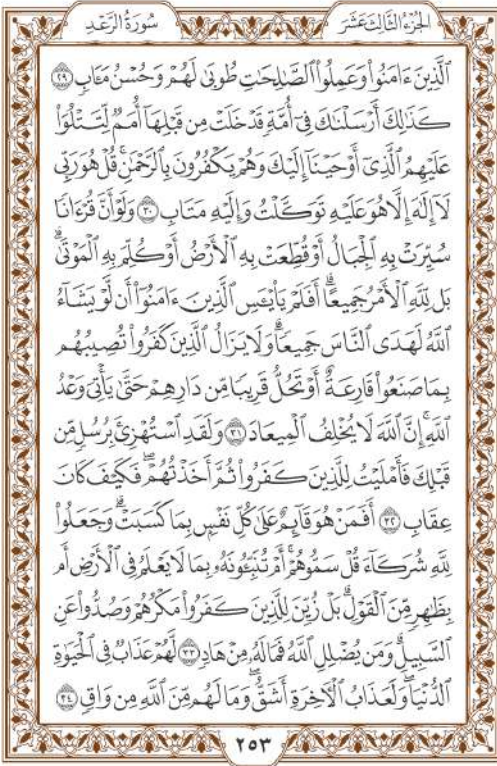 الجزء الثالث عشر
سورة الرعد
ٱلَّذِينَ ءَامَنُوا۟ وَعَمِلُوا۟ ٱلصَّـٰلِحَـٰتِ طُوبَىٰ لَهُمْ وَحُسْنُ مَـَٔابٍ ٢٩
كَذَٰلِكَ أَرْسَلْنَـٰكَ فِىٓ أُمَّةٍ قَدْ خَلَتْ مِن قَبْلِهَآ أُمَمٌ لِّتَتْلُوَا۟
عَلَيْهِمُ ٱلَّذِىٓ أَوْحَيْنَآ إِلَيْكَ وَهُمْ يَكْفُرُونَ بِٱلرَّحْمَـٰنِ ۚ قُلْ هُوَ رَبِّى
لَآ إِلَـٰهَ إِلَّا هُوَ عَلَيْهِ تَوَكَّلْتُ وَإِلَيْهِ مَتَابِ ٣٠ وَلَوْ أَنَّ قُرْءَانًا
سُيِّرَتْ بِهِ ٱلْجِبَالُ أَوْ قُطِّعَتْ بِهِ ٱلْأَرْضُ أَوْ كُلِّمَ بِهِ ٱلْمَوْتَىٰ ۗ
بَل لِّلَّهِ ٱلْأَمْرُ جَمِيعًا ۗ أَفَلَمْ يَا۟يْـَٔسِ ٱلَّذِينَ ءَامَنُوٓا۟ أَن لَّوْ يَشَآءُ
ٱللَّهُ لَهَدَى ٱلنَّاسَ جَمِيعًا ۗ وَلَا يَزَالُ ٱلَّذِينَ كَفَرُوا۟ تُصِيبُهُم
بِمَا صَنَعُوا۟ قَارِعَةٌ أَوْ تَحُلُّ قَرِيبًا مِّن دَارِهِمْ حَتَّىٰ يَأْتِىَ وَعْدُ
ٱللَّهِ ۚ إِنَّ ٱللَّهَ لَا يُخْلِفُ ٱلْمِيعَادَ ٣١ وَلَقَدِ ٱسْتُهْزِئَ بِرُسُلٍ مِّن
قَبْلِكَ فَأَمْلَيْتُ لِلَّذِينَ كَفَرُوا۟ ثُمَّ أَخَذْتُهُمْ ۖ فَكَيْفَ كَانَ
عِقَابِ ٣٢ أَفَمَنْ هُوَ قَآئِمٌ عَلَىٰ كُلِّ نَفْسٍۭ بِمَا كَسَبَتْ ۗ وَجَعَلُوا۟
لِلَّهِ شُرَكَآءَ قُلْ سَمُّوهُمْ ۚ أَمْ تُنَبِّـُٔونَهُۥ بِمَا لَا يَعْلَمُ فِى ٱلْأَرْضِ أَم
بِظَـٰهِرٍ مِّنَ ٱلْقَوْلِ ۗ بَلْ زُيِّنَ لِلَّذِينَ كَفَرُوا۟ مَكْرُهُمْ وَصُدُّوا۟ عَنِ
ٱلسَّبِيلِ ۗ وَمَن يُضْلِلِ ٱللَّهُ فَمَا لَهُۥ مِنْ هَادٍ ٣٣ لَّهُمْ عَذَابٌ فِى ٱلْحَيَوٰةِ
ٱلدُّنْيَا ۖ وَلَعَذَابُ ٱلْـَٔاخِرَةِ أَشَقُّ ۖ وَمَا لَهُم مِّنَ ٱللَّهِ مِن وَاقٍ ٣٤
٢٥٣